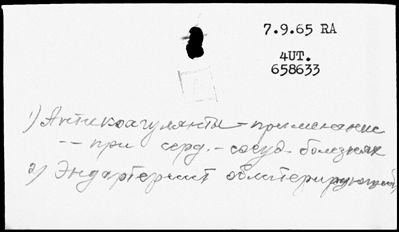 7.9.65 RA
4UT.
658633
1) Антикоагулянты – применение
-- при серд.- сосуд. болезнях
2) Эндартериит облитерирующий